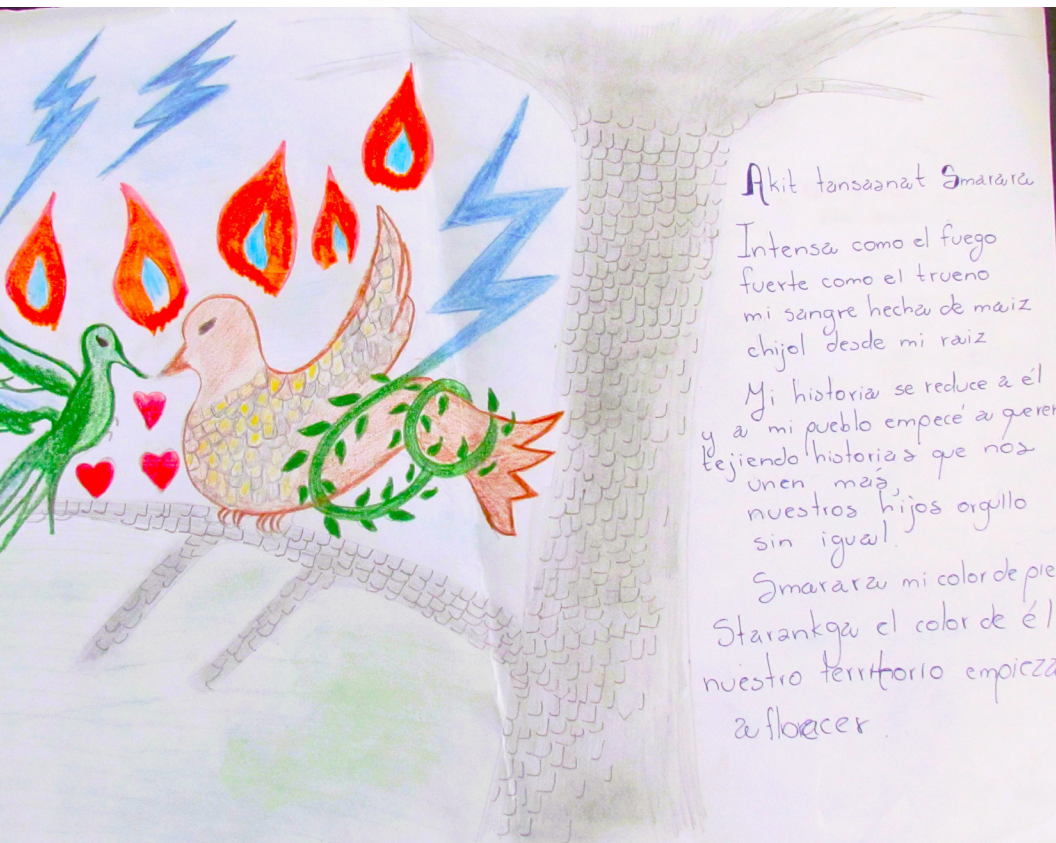 Akit tansasnat Smarara
Intensa como el fuego
fuerte como el trueno
mi sangre hecha de maiz
chijol desde mi raiz
Mi historia se reduce a él
y a mi pueblo empecé a querer
tejiendo historias que nos
unen más,
nuestros hijos orgullo
sin igual.
Smarara mi color de pie
Starankga el color de él
nuestro territorio empieza
a floracer.